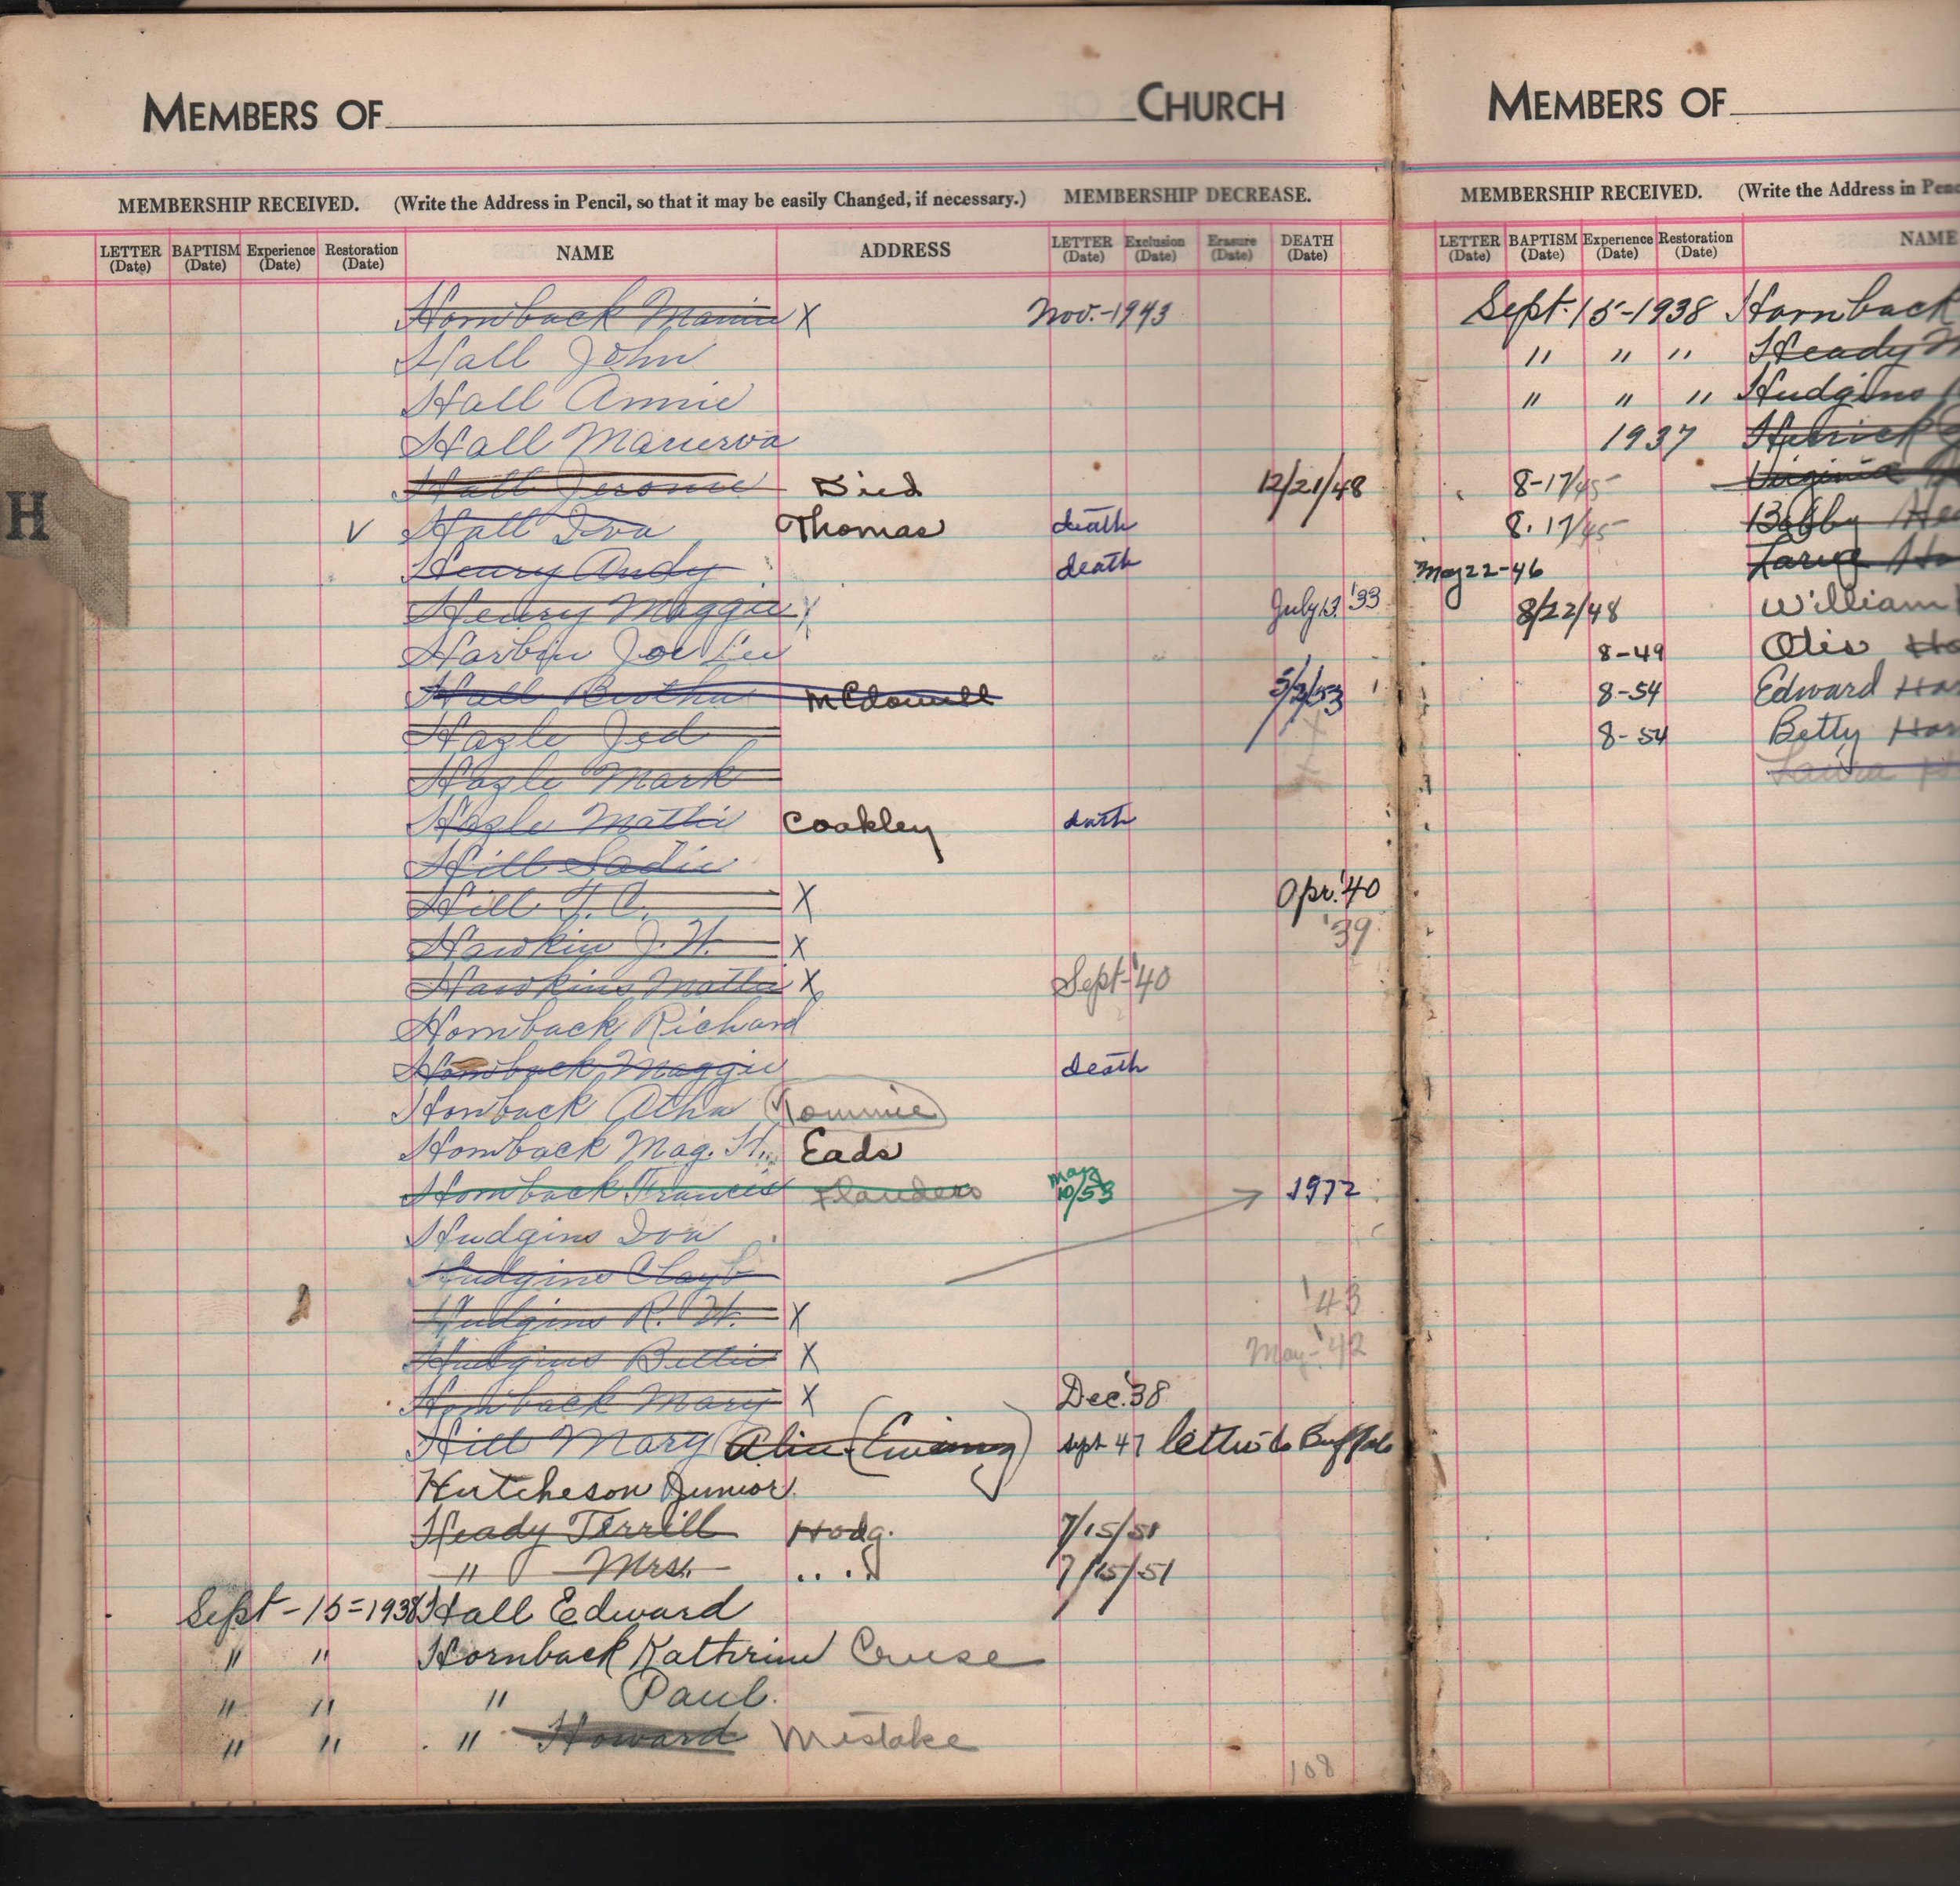 MEMBERS OF CHURCH
MEMBERSHIP RECEIVED. (Write the Address in Pencil, so that it may be easily Changed, if necessary.) MEMBERSHIP DECREASE.
LETTER (Date) BAPTISM (Date) Experience (Date) Restoration (Date) NAME ADDRESS LETTER (Date) Exclusion (Date) Erasure (Date) DEATH (Date)
Hornback X Nov.-1943
Hall John
Hall Annie
Hall
Hall Jeromie Died 12/21/48
H
V Hall Iva Thomas death
Henry Andy death
Henry Maggie X July 13 '33
Harbin Joe Lee
Hall Bertha McDowell 5/2/53
Hazle Jed
Hazle Mark
Hazle Mattie Coakley death
Hill Sadie
Hill T. C. X Apr. '40
Hawkin J. H. X '39
Hawkins Mattie X Sept-'40
Hornback Richard
Hornback Maggie death
Hornback Atha Tommie
Hornback Mag. H. Eads
Hornback Francis Flanders May 10/53 1972
Hudgins Iva
Hudgins Clayb
Hudgins R. H. X '43
Hudgins Bettie X May-'42
Hornback Mary X Dec. '38
Hill Mary Alice (Ewing) Sept 47 letter to Buffalo
Hutcheson Junior.
Heady Terrill Hodg. 7/15/51
" Mrs. .... 7/15/51
Sept-15=1938 Hall Edward
" " Hornback Kathrine Cruse
" " " Paul.
" " " Howard Mistake
108
MEMBERS OF
MEMBERSHIP RECEIVED. (Write the Address in
LETTER (Date) BAPTISM (Date) Experience (Date) Restoration (Date) NAME
Sept. 15-1938 Hornback
" " " Heady
" " " Hudgins
1937
8-17/45 Virginia
8.17/45 Bobby
May 22-46
8/22/48 William
8-49 Otis
8-54 Edward
8-54 Betty
Laura